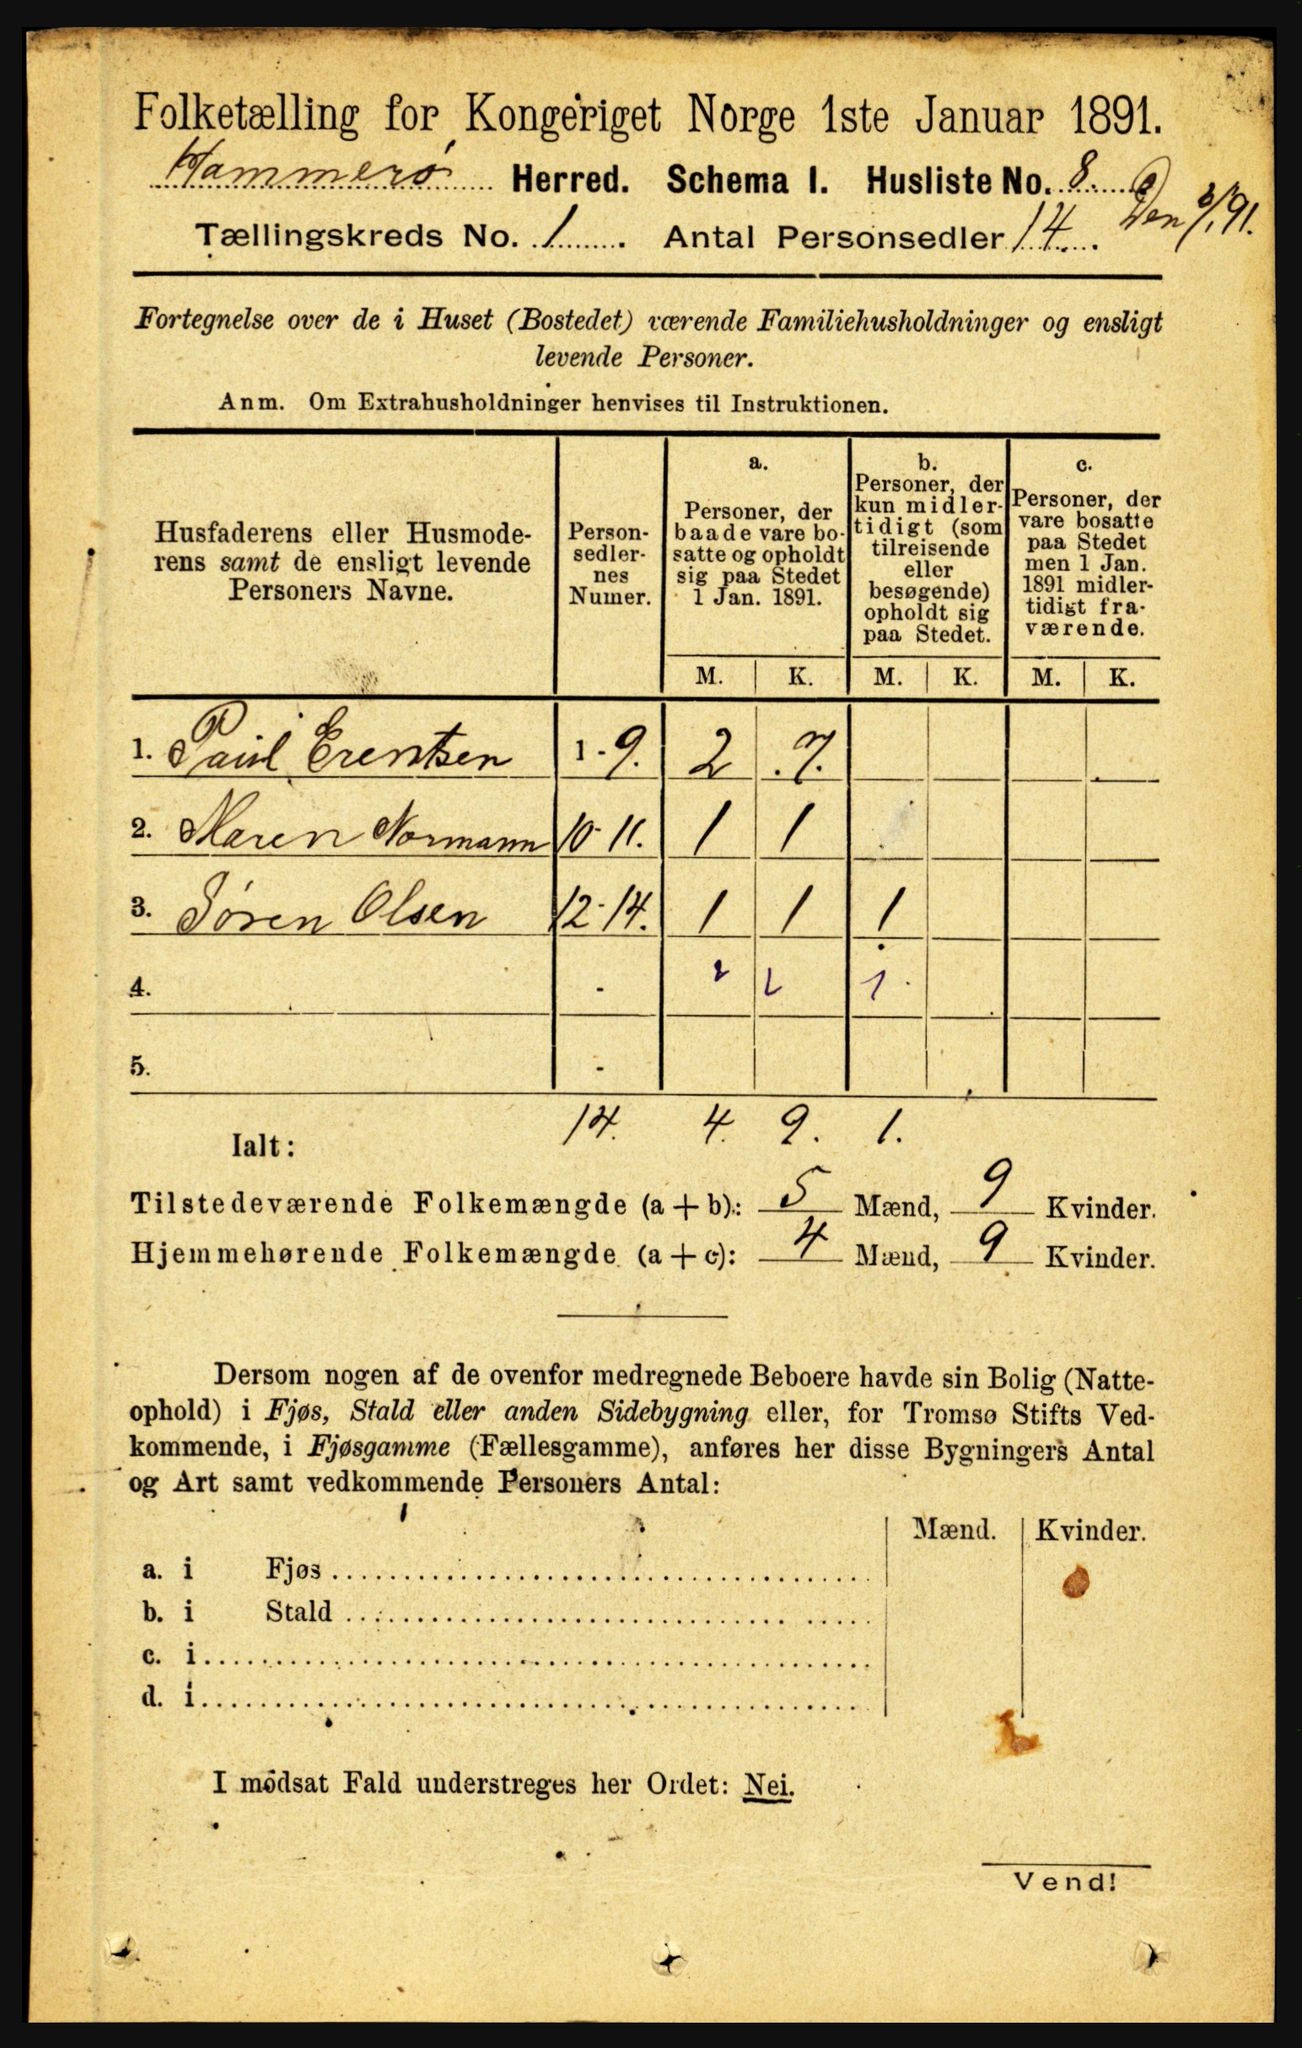 Folketælling for Kongeriget Norge 1ste Januar 1891.
Hammerø Herred. Schema I. Husliste No. 8.
Tællingskreds No. 1. Antal Personsedler 14.
Den 3/1 91.
Fortegnelse over de i Huset (Bostedet) værende Familiehusholdninger og ensligt
levende Personer.
Anm. Om Extrahusholdninger henvises til Instruktionen.
Husfaderens eller Husmode-
rens samt de ensligt levende
Personers Navne.
Person-
sedler-
nes
Numer.
a.
Personer, der
baade vare bo-
satte og opholdt
sig paa Stedet
1 Jan. 1891.
b.
Personer, der
kun midler-
tidigt (som
tilreisende
eller
besøgende)
opholdt sig
paa Stedet.
c.
Personer, der
vare bosatte
paa Stedet
men 1 Jan.
1891 midler-
tidigt fra-
værende.
M. K. M. K. M. K.
1. Paul Erentsen 1 - 9. 2 7.
2. Maren Normann 10 - 11. 1 1
3. Søren Olsen 12 - 14. 1 1 1
4. - 2 2 1
5. -
Ialt: 14. 4. 9. 1.
Tilstedeværende Folkemængde (a + b): 5 Mænd, 9 Kvinder.
Hjemmehørende Folkemængde (a + c): 4 Mænd, 9 Kvinder.
Dersom nogen af de ovenfor medregnede Beboere havde sin Bolig (Natte-
ophold) i Fjøs, Stald eller anden Sidebygning eller, for Tromsø Stifts Ved-
kommende, i Fjøsgamme (Fællesgamme), anføres her disse Bygningers Antal
og Art samt vedkommende Personers Antal:
Mænd. Kvinder.
a. i Fjøs
b. i Stald
c. i
d. i
I modsat Fald understreges her Ordet: Nei.
Vend!